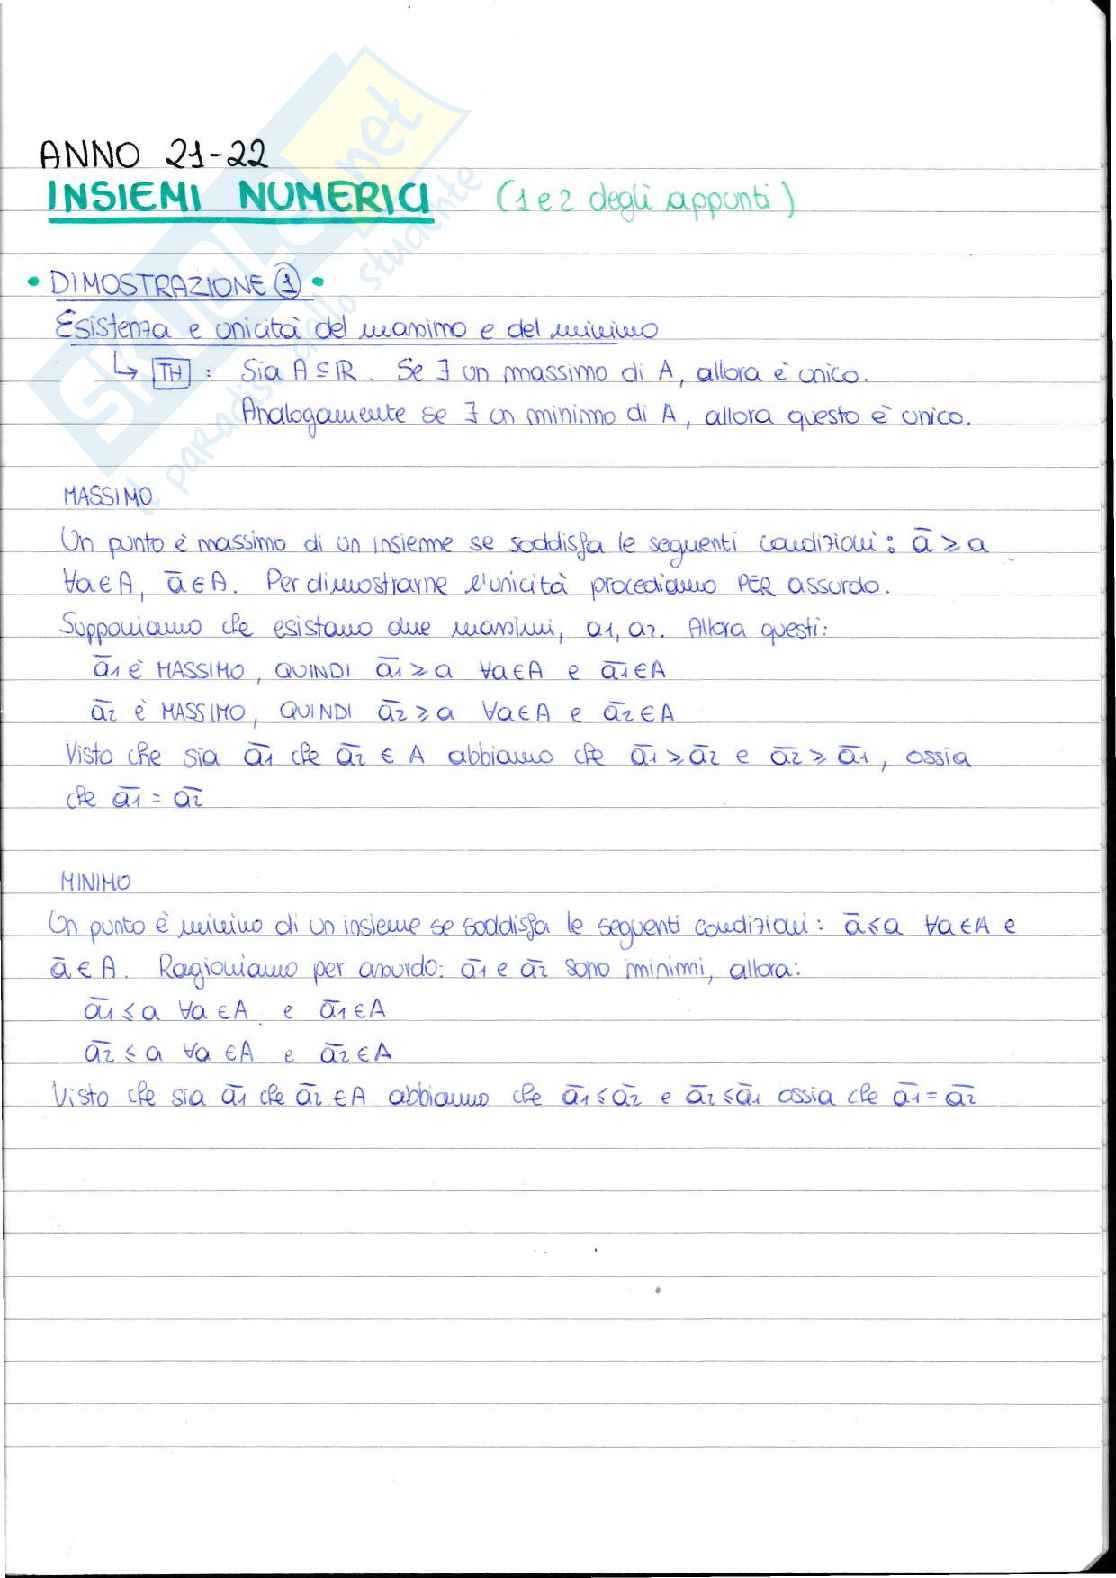 ANNO 21-22
INSIEMI NUMERICI (1 e 2 degli appunti)
• DIMOSTRAZIONE ① •
Esistenza e unicità del massimo e del minimo
↳ TH : Sia A ⊆ ℝ. Se ∃ un massimo di A, allora è unico.
Analogamente se ∃ un minimo di A, allora questo è unico.
MASSIMO
Un punto è massimo di un insieme se soddisfa le seguenti condizioni: ā ≥ a
∀a ∈ A, ā ∈ A. Per dimostrarne l'unicità procediamo PER assurdo.
Supponiamo che esistano due massimi, a1, a2. Allora questi:
ā1 è MASSIMO, QUINDI ā1 ≥ a ∀a ∈ A e ā1 ∈ A
ā2 è MASSIMO, QUINDI ā2 ≥ a ∀a ∈ A e ā2 ∈ A
Visto che sia ā1 che ā2 ∈ A abbiamo che ā1 ≥ ā2 e ā2 ≥ ā1, ossia
che ā1 = ā2
MINIMO
Un punto è minimo di un insieme se soddisfa le seguenti condizioni: ā ≤ a ∀a ∈ A e
ā ∈ A. Ragioniamo per assurdo: ā1 e ā2 sono minimi, allora:
ā1 ≤ a ∀a ∈ A e ā1 ∈ A
ā2 ≤ a ∀a ∈ A e ā2 ∈ A
Visto che sia ā1 che ā2 ∈ A abbiamo che ā1 ≤ ā2 e ā2 ≤ ā1 ossia che ā1 = ā2
Skuola.net
il paradiso dello studente